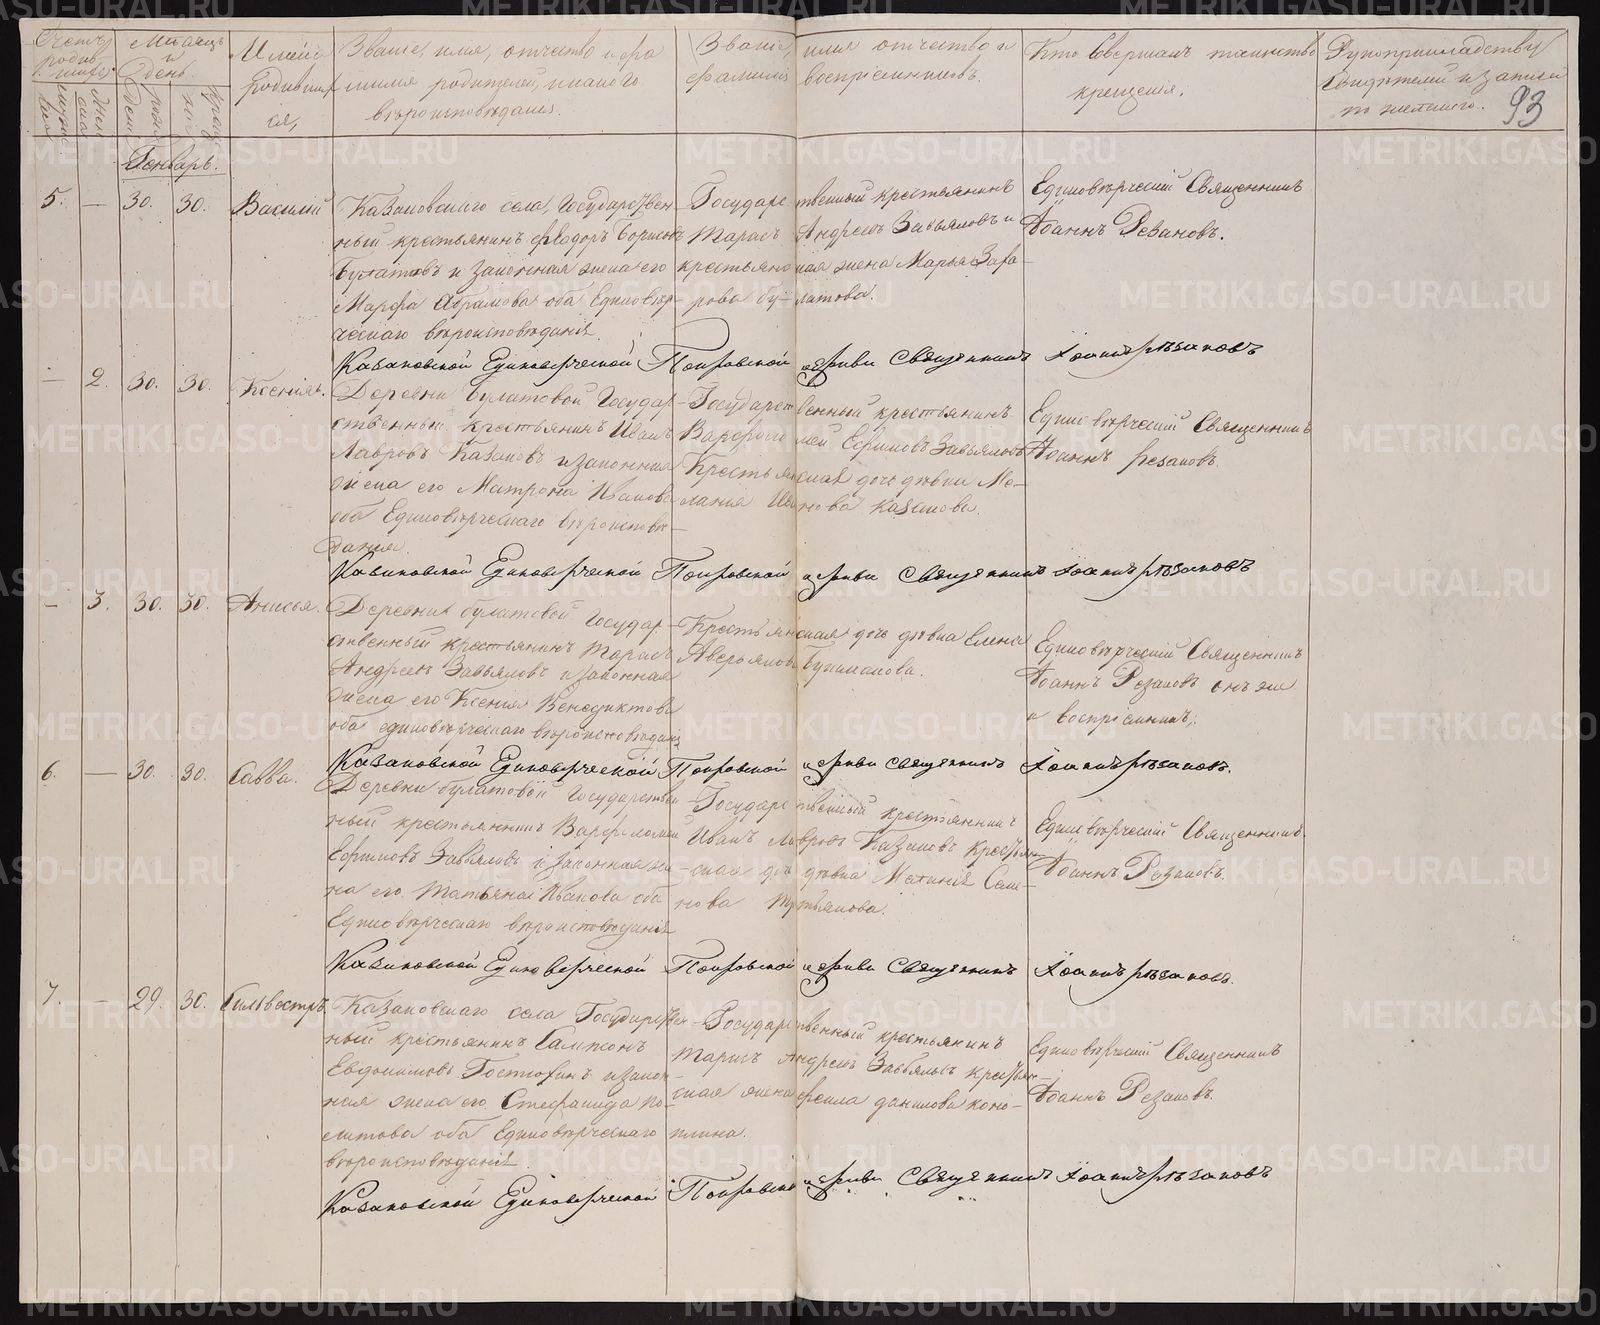 Счетъ родив
шихся.
мужес
каго
жен
скаго
Мѣсяцъ
и
день.
рожде
нія
креще
нія
Имена
родивших
ся,
Званіе, имя, отчество и фа
милія родителей, и какого
вѣроисповѣданія.
Званіе, имя отчество и
фамилія воспріемниковъ.
Кто Совершалъ таинство
крещенія.
Рукоприкладство
Свидѣтелей и записи
по желанію.
93
Январь.
5. — 30. 30. Василій
Казаковскаго села, Государствен
ный крестьянинъ Ѳеодоръ Борисовъ
Булатовъ и Законная жена его
Марфа Абрамова оба Единовѣр-
ческаго вѣроисповѣданія.
Государственный крестьянинъ
Тарасъ Андреевъ Завьяловъ и
крестьянская жена Марья Заха-
рова булатова.
Единовѣрческій Священникъ
Іоаннъ Резановъ.
Казаковской Единоверческой Покровской церкви Священникъ Іоаннъ Рѣзановъ
— 2. 30. 30. Ксенія.
Деревни булатовой Государ-
ственный крестьянинъ Иванъ
Лавровъ Казаковъ и законная
жена его Матрона Иванова
оба Единовѣрческаго вѣроисповѣ-
данія.
Государственный крестьянинъ
Варфоломей Ефимовъ Завьяловъ
Крестьянская дочь дѣвка Ме-
ланія Иванова Казакова.
Единовѣрческій Священникъ
Іоаннъ Резановъ.
Казаковской Единоверческой Покровской церкви Священникъ Іоаннъ Рѣзановъ
— 3. 30. 30. Анисья.
Деревни булатовой Государ-
ственный крестьянинъ Тарасъ
Андреевъ Завьяловъ и законная
жена его Ксенія Венедиктова
оба единовѣрческаго вѣроисповѣданія
Крестьянская дочь дѣвка Елена
Аверьянова
Единовѣрческій Священникъ
Іоаннъ Резановъ онъ же
и воспріемникъ;
Казаковской Единоверческой Покровской церкви священникъ Іоаннъ Рѣзановъ.
6. — 30. 30. Савва.
Деревни булатовой Государствен
ный крестьянинъ Варфоломей
Ефимовъ Завьяловъ и Законная же
на его Татьяна Иванова оба
Единовѣрческаго вѣроисповѣданія
Государственный крестьянинъ
Иванъ Лавровъ Казаковъ Крестьян-
ская дочь дѣвка
Единовѣрческій Священникъ.
Іоаннъ Резановъ.
Казаковской Единоверческой Покровской церкви Священникъ Іоаннъ Рѣзановъ.
7. — 29. 30. Сильвестръ.
Казаковскаго села Государствен
ный крестьянинъ Сампсонъ
Евдокимовъ и закон-
ная жена его Стефанида По-
оба Единовѣрческаго
вѣроисповѣданія.
Государственный крестьянинъ
Тарасъ Андреевъ Завьяловъ Крестьян-
ская жена данилова коно-
плина.
Единовѣрческій Священникъ
Іоаннъ Резановъ.
Казаковской Единоверческой Покровской церкви Священникъ Іоаннъ Рѣзановъ
METRIKI.GASO-URAL.RU